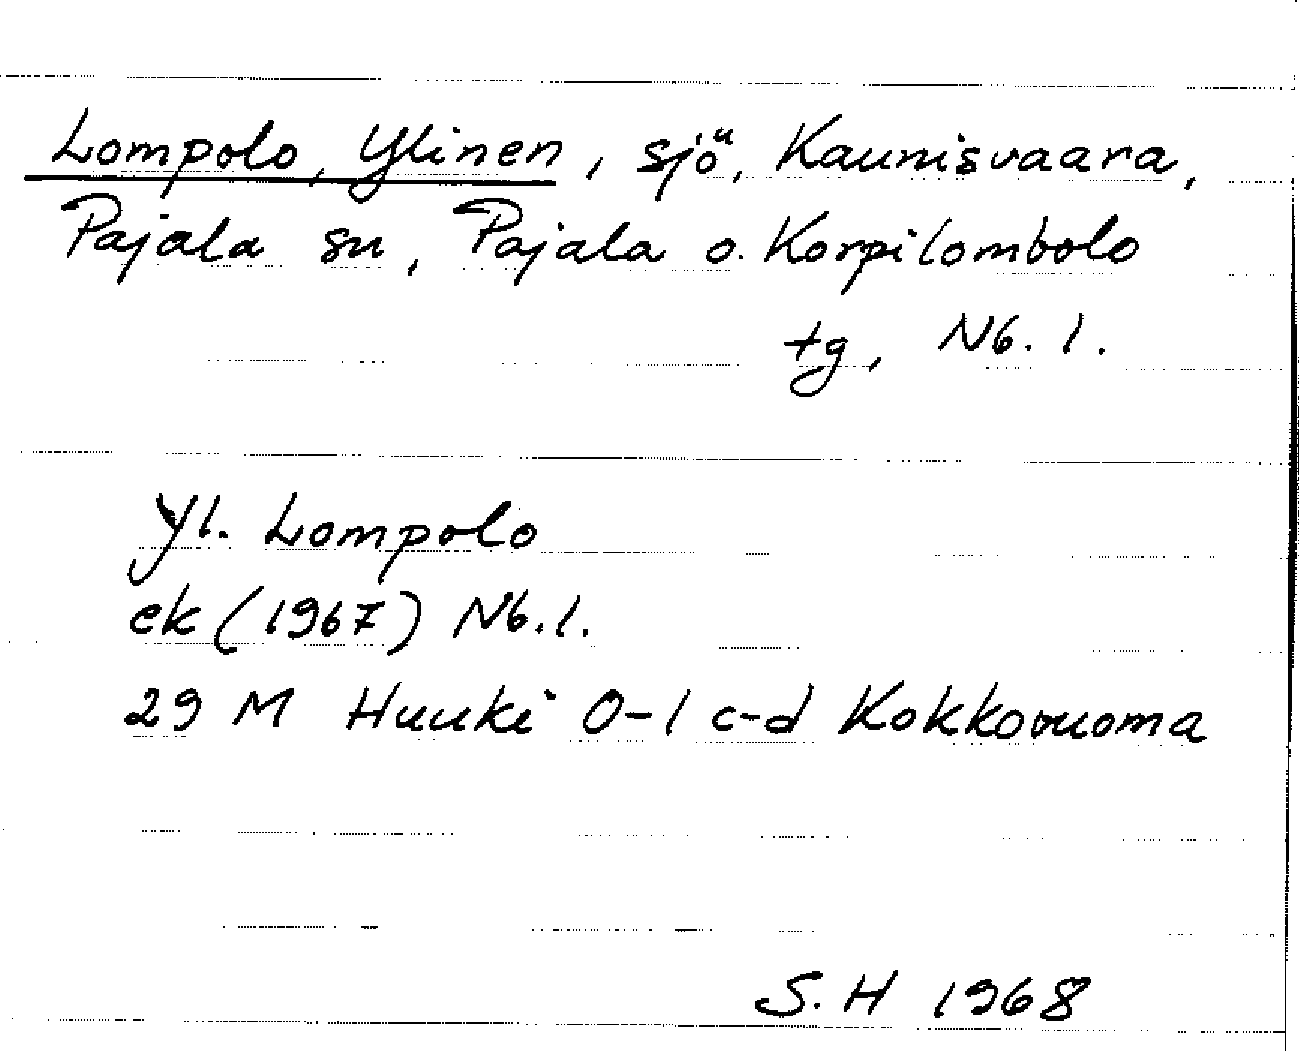 Lompolo, Ylinen, sjö, Kaunisvaara,
Pajala sn, Pajala o. Korpilombolo
tg, Nb. l.
Yl. Lompolo
ek (1967) Nb. l.
29 M Huuki 0-1 c-d Kokkovuoma
S. H 1968